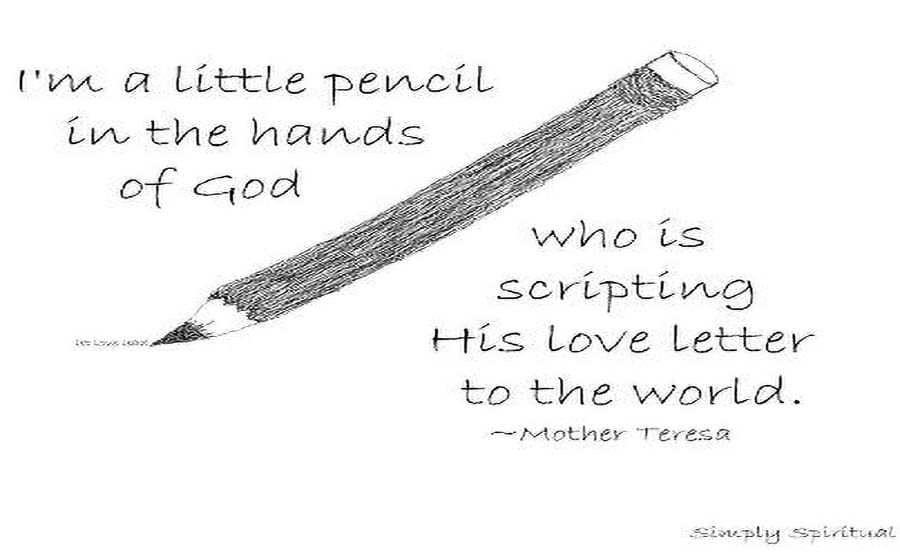 I'm a little pencil
in the hands
of God
who is
scripting
His love letter
to the world.
~Mother Teresa
let love lead
Simply Spiritual